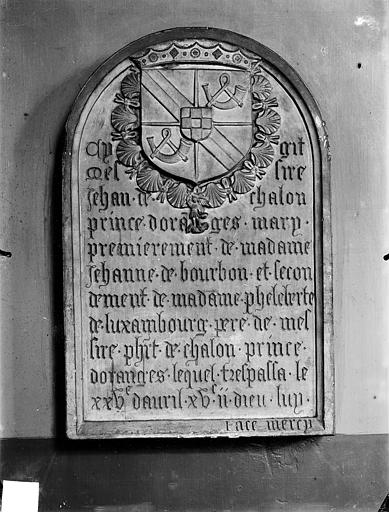 Cy git
Mes sire
Jehan · de chalon
prince · doranges · mary ·
premierement · de · madame
Jehanne · de · bourbon · et · secon
dement · de · madame · pheleberte
de · luxambourg · pere · de · mes
sire · phrt · de · chalon · prince ·
doranges · lequel · trespassa · le
xxve dauril · xvc · ii · dieu · luy ·
face mercy